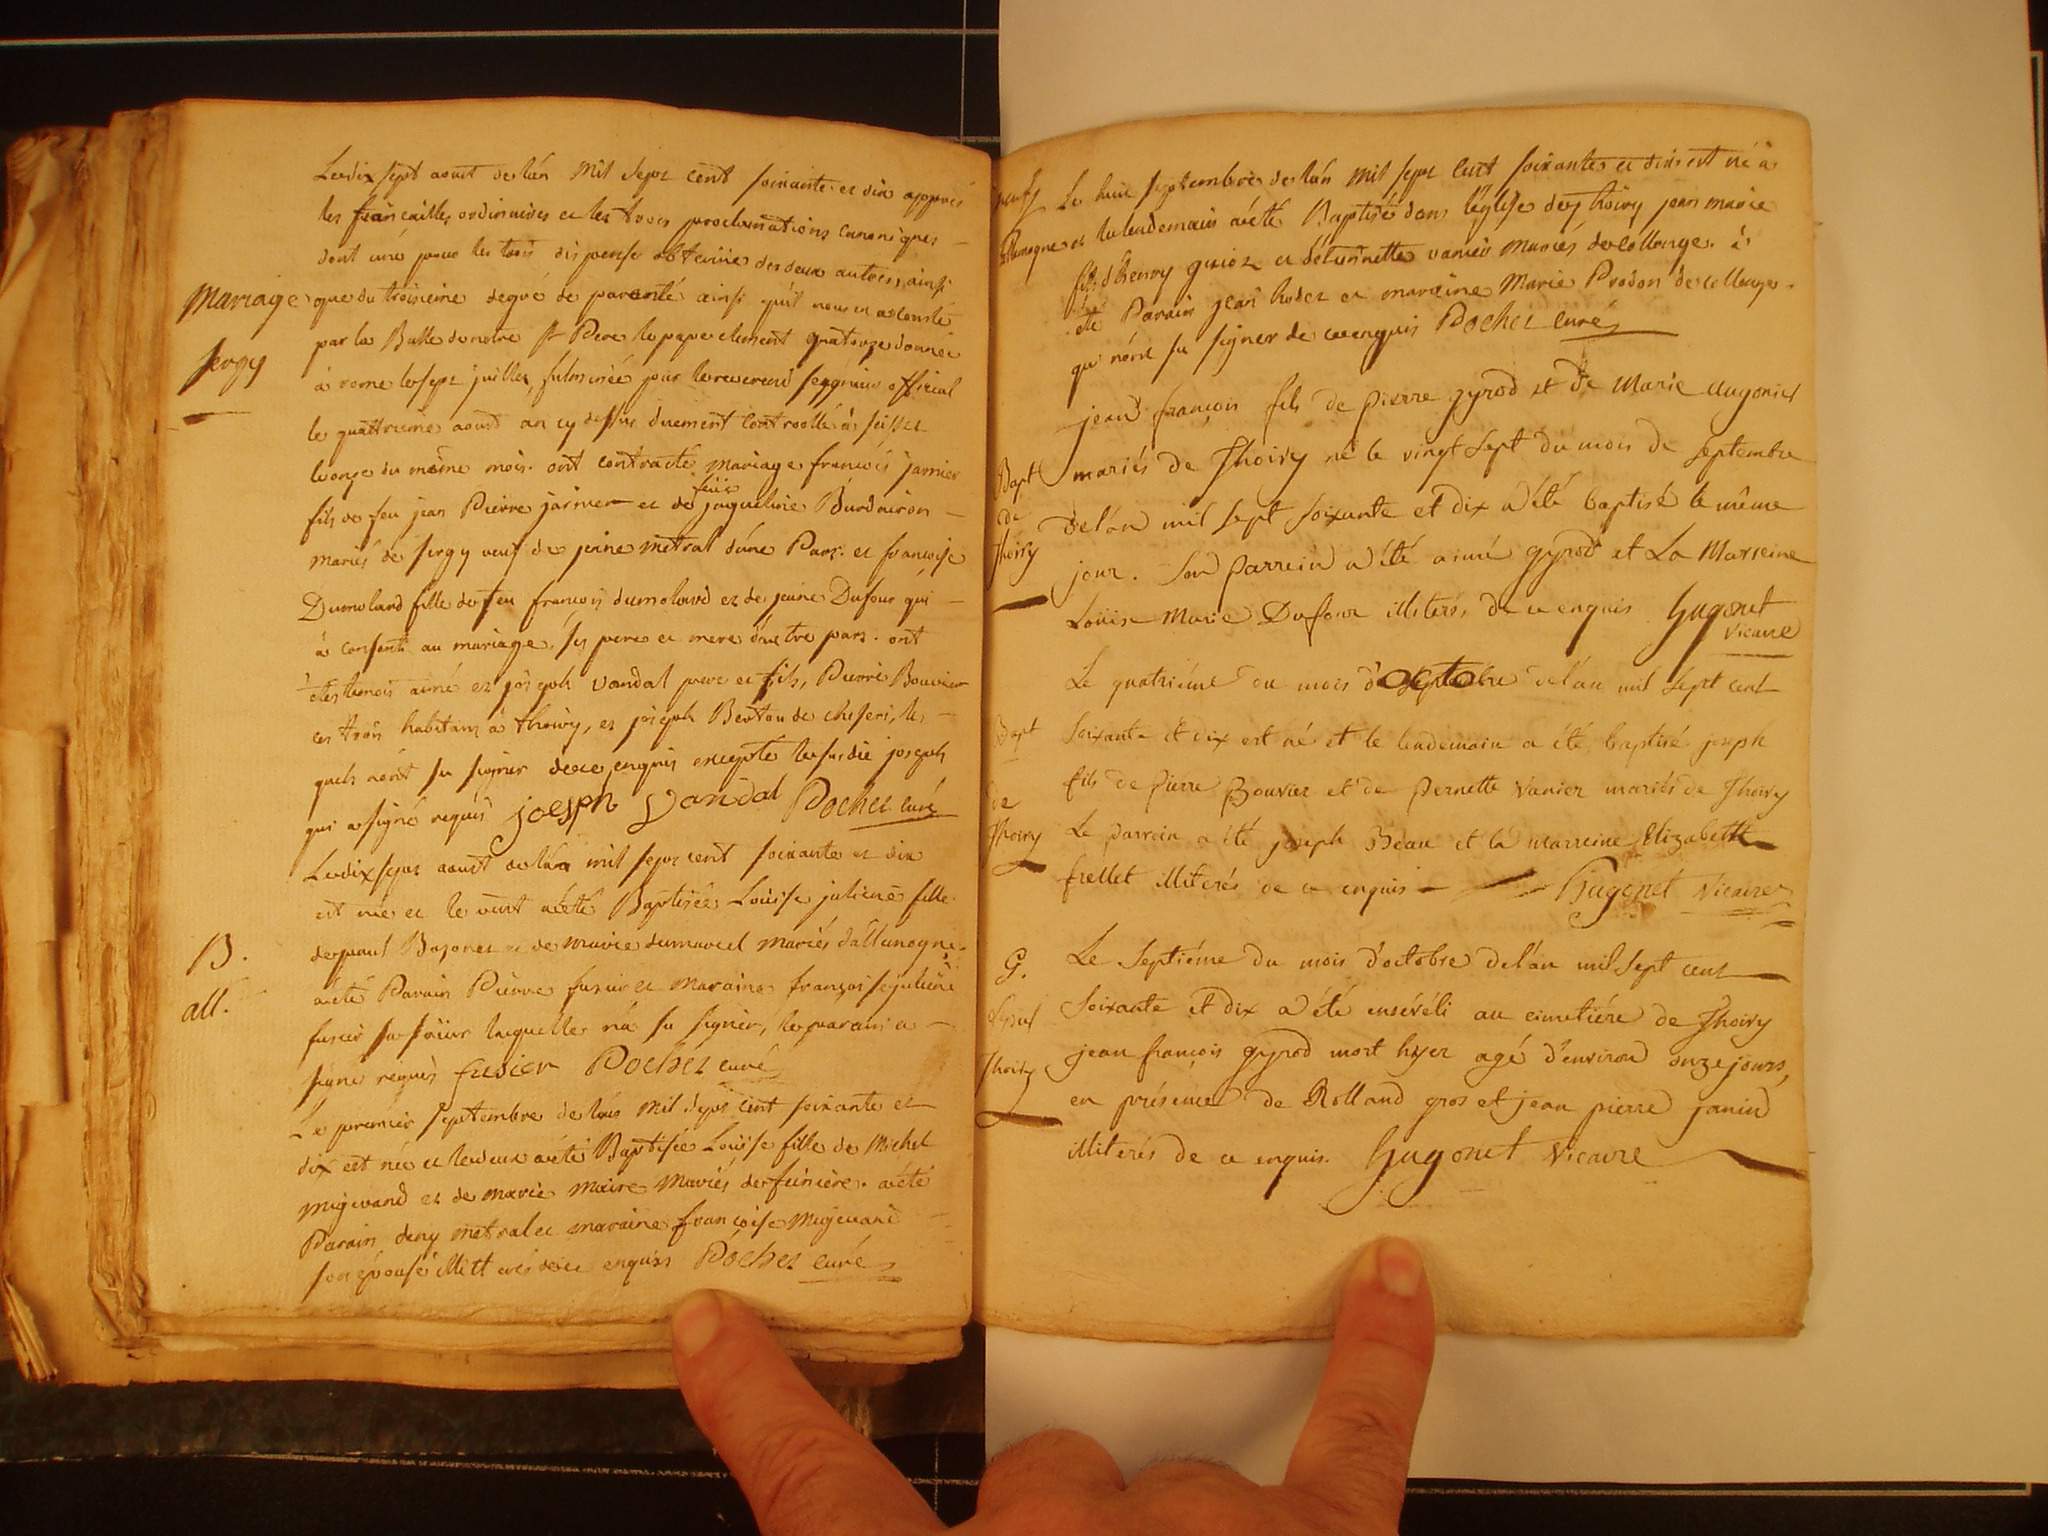 Le dix sept aoust de l'an mil sept cent soixante et dix apprès
les fiancailles ordinaires et les trois proclamations canoniques
dont une pour les trois dispense obtenüe des deux autres, ainsi
Mariage que du troisieme degré de parenté ainsi qu'il nous a consté
par la Bulle de notre St Pere le pape clement quatorze donnée
Sergy à rome le sept juillet, fulminée par le reverend seigneur official
le quattrieme aoust an cy dessus duement controollé à
le onze du même mois. ont contracté mariage francois jarnier
feüe
fils de feu jean Pierre jarnier et de jaqueline Burdairon
mariés de sergy veuf de jeane métral d'une Part. et francoise
Dumoland fille de feu francois dumoland et de jeane Dufour qui
à consenti au mariage, ses pere et mere d'autre part. ont
étés temois aimé et joseph vandal pere et fils, Pierre Bouvier
ces trois habitans à thoiry, et joseph Berton de cheseri, les
quels n'ont su signer de ce enquis excepté le susdit joseph
qui a signé requis joesph vandal Pochet curé
Le dix sept aoust de l'an mil sept cent soixante et dix
est née et le vint a été Baptisée Loüise julienne fille
B. de paul Bazonet et de marie dumarcel mariés d'allemogne.
all. a été Parain Pierre fusier et maraine françoise julienne
fusier sa soeur laquelle n'a su signer, le parain a
signé requis fusier Pochet curé
Le premier septembre de l'an mil sept cent soixante et
dix est née et le deux a été Baptisée Loüise fille de Michel
migevand et de marie maire mariés de feniere. a été
Parain deny metral et maraine françoise migevand
son épouse illitterés de ce enquis Pochet curé
Le huit septembre de l'an mil sept cent soixante et dix est né à
et le lendemain a été Baptisé dans l'église de thoiry jean marie
fils d'henry guiot et d'étiennette vanier mariés de collonge. à
été Parain jean hodet et maraine Marie Prodon de collonge.
qui n'ont su signer de ce enquis Pochet curé
jean françois fils de pierre gyrod et de Marie Augonier
Bapt mariés de Thoiry né le vingt sept du mois de septembre
de de l'an mil sept soixante et dix a été baptisé le même
Thoiry jour. Son parrein a été aimé gyrod et La Marreine
Loüise Marie Dufour illiterés, de ce enquis Hugonet
vicaire
Le quatriéme du mois d'octobre de l'an mil sept cent
Bapt soixante et dix est né et le lendemain a été baptisé joseph
de fils de pierre Bouvier et de pernette vanier mariés de Thoiry
Thoiry Le parrein a été joseph Beau et la marreine Elizabeth
frellet illiterés de ce enquis Hugonet vicaire
G. Le septiéme du mois d'octobre de l'an mil sept cent
soixante et dix a été enséveli au cimetiére de Thoiry
Thoiry jean françois gyrod mort hyer agé d'environ onze jours,
en présence de Rolland gros et jean pierre janin
illiterés de ce enquis. Hugonet vicaire